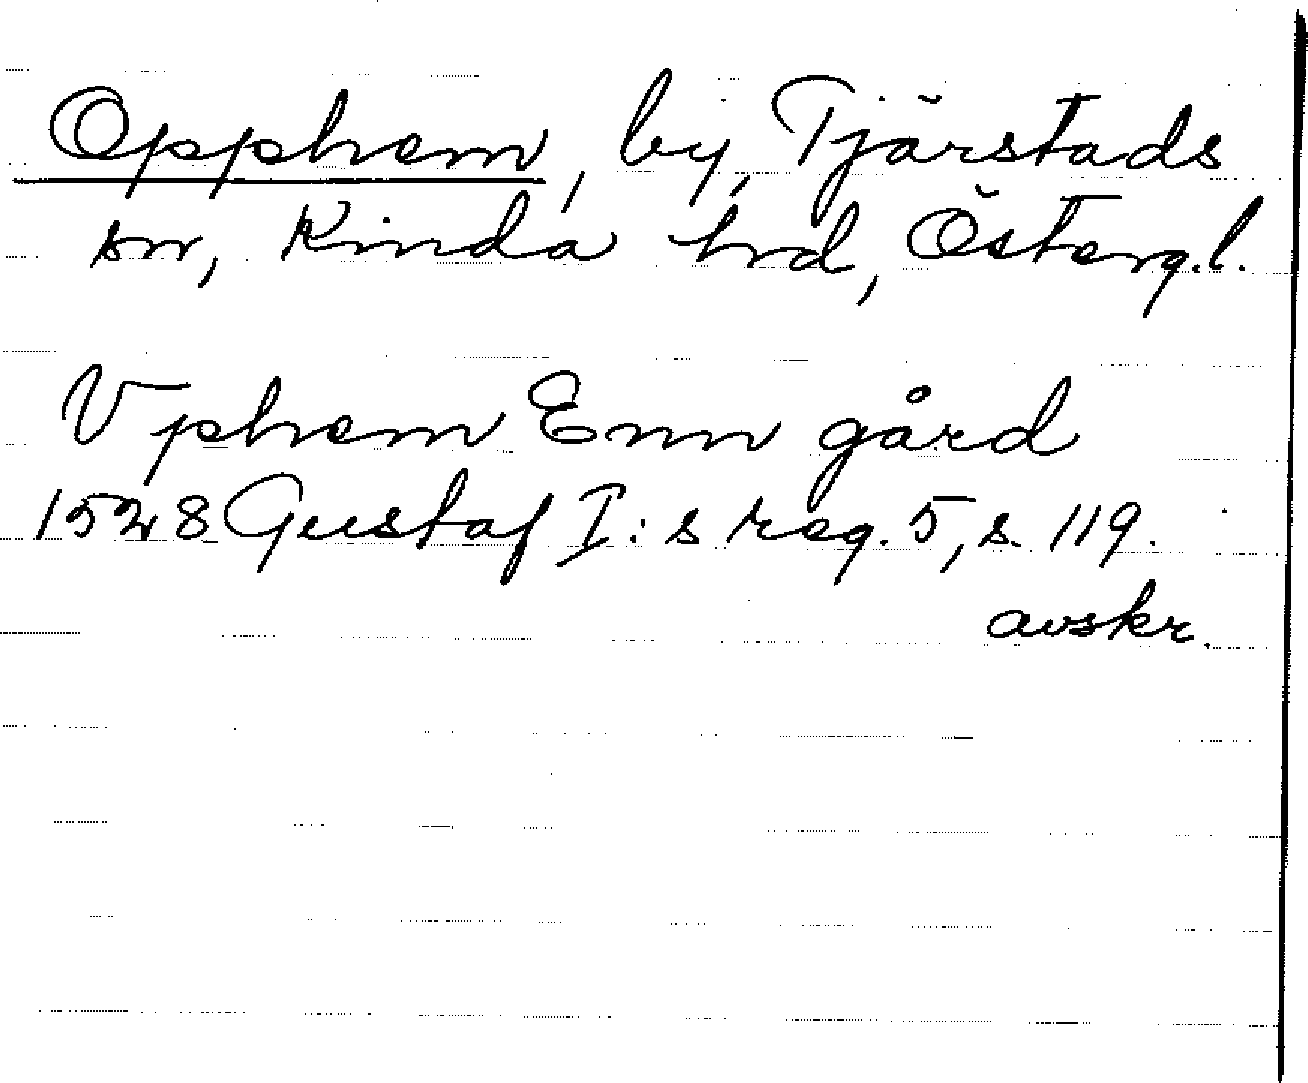 Opphem, by, Tjärstads
sn, Kinda hrd, Österg.l.
Vphem Enn gård
1528 Gustaf I:s reg. 5, s. 119.
avskr.